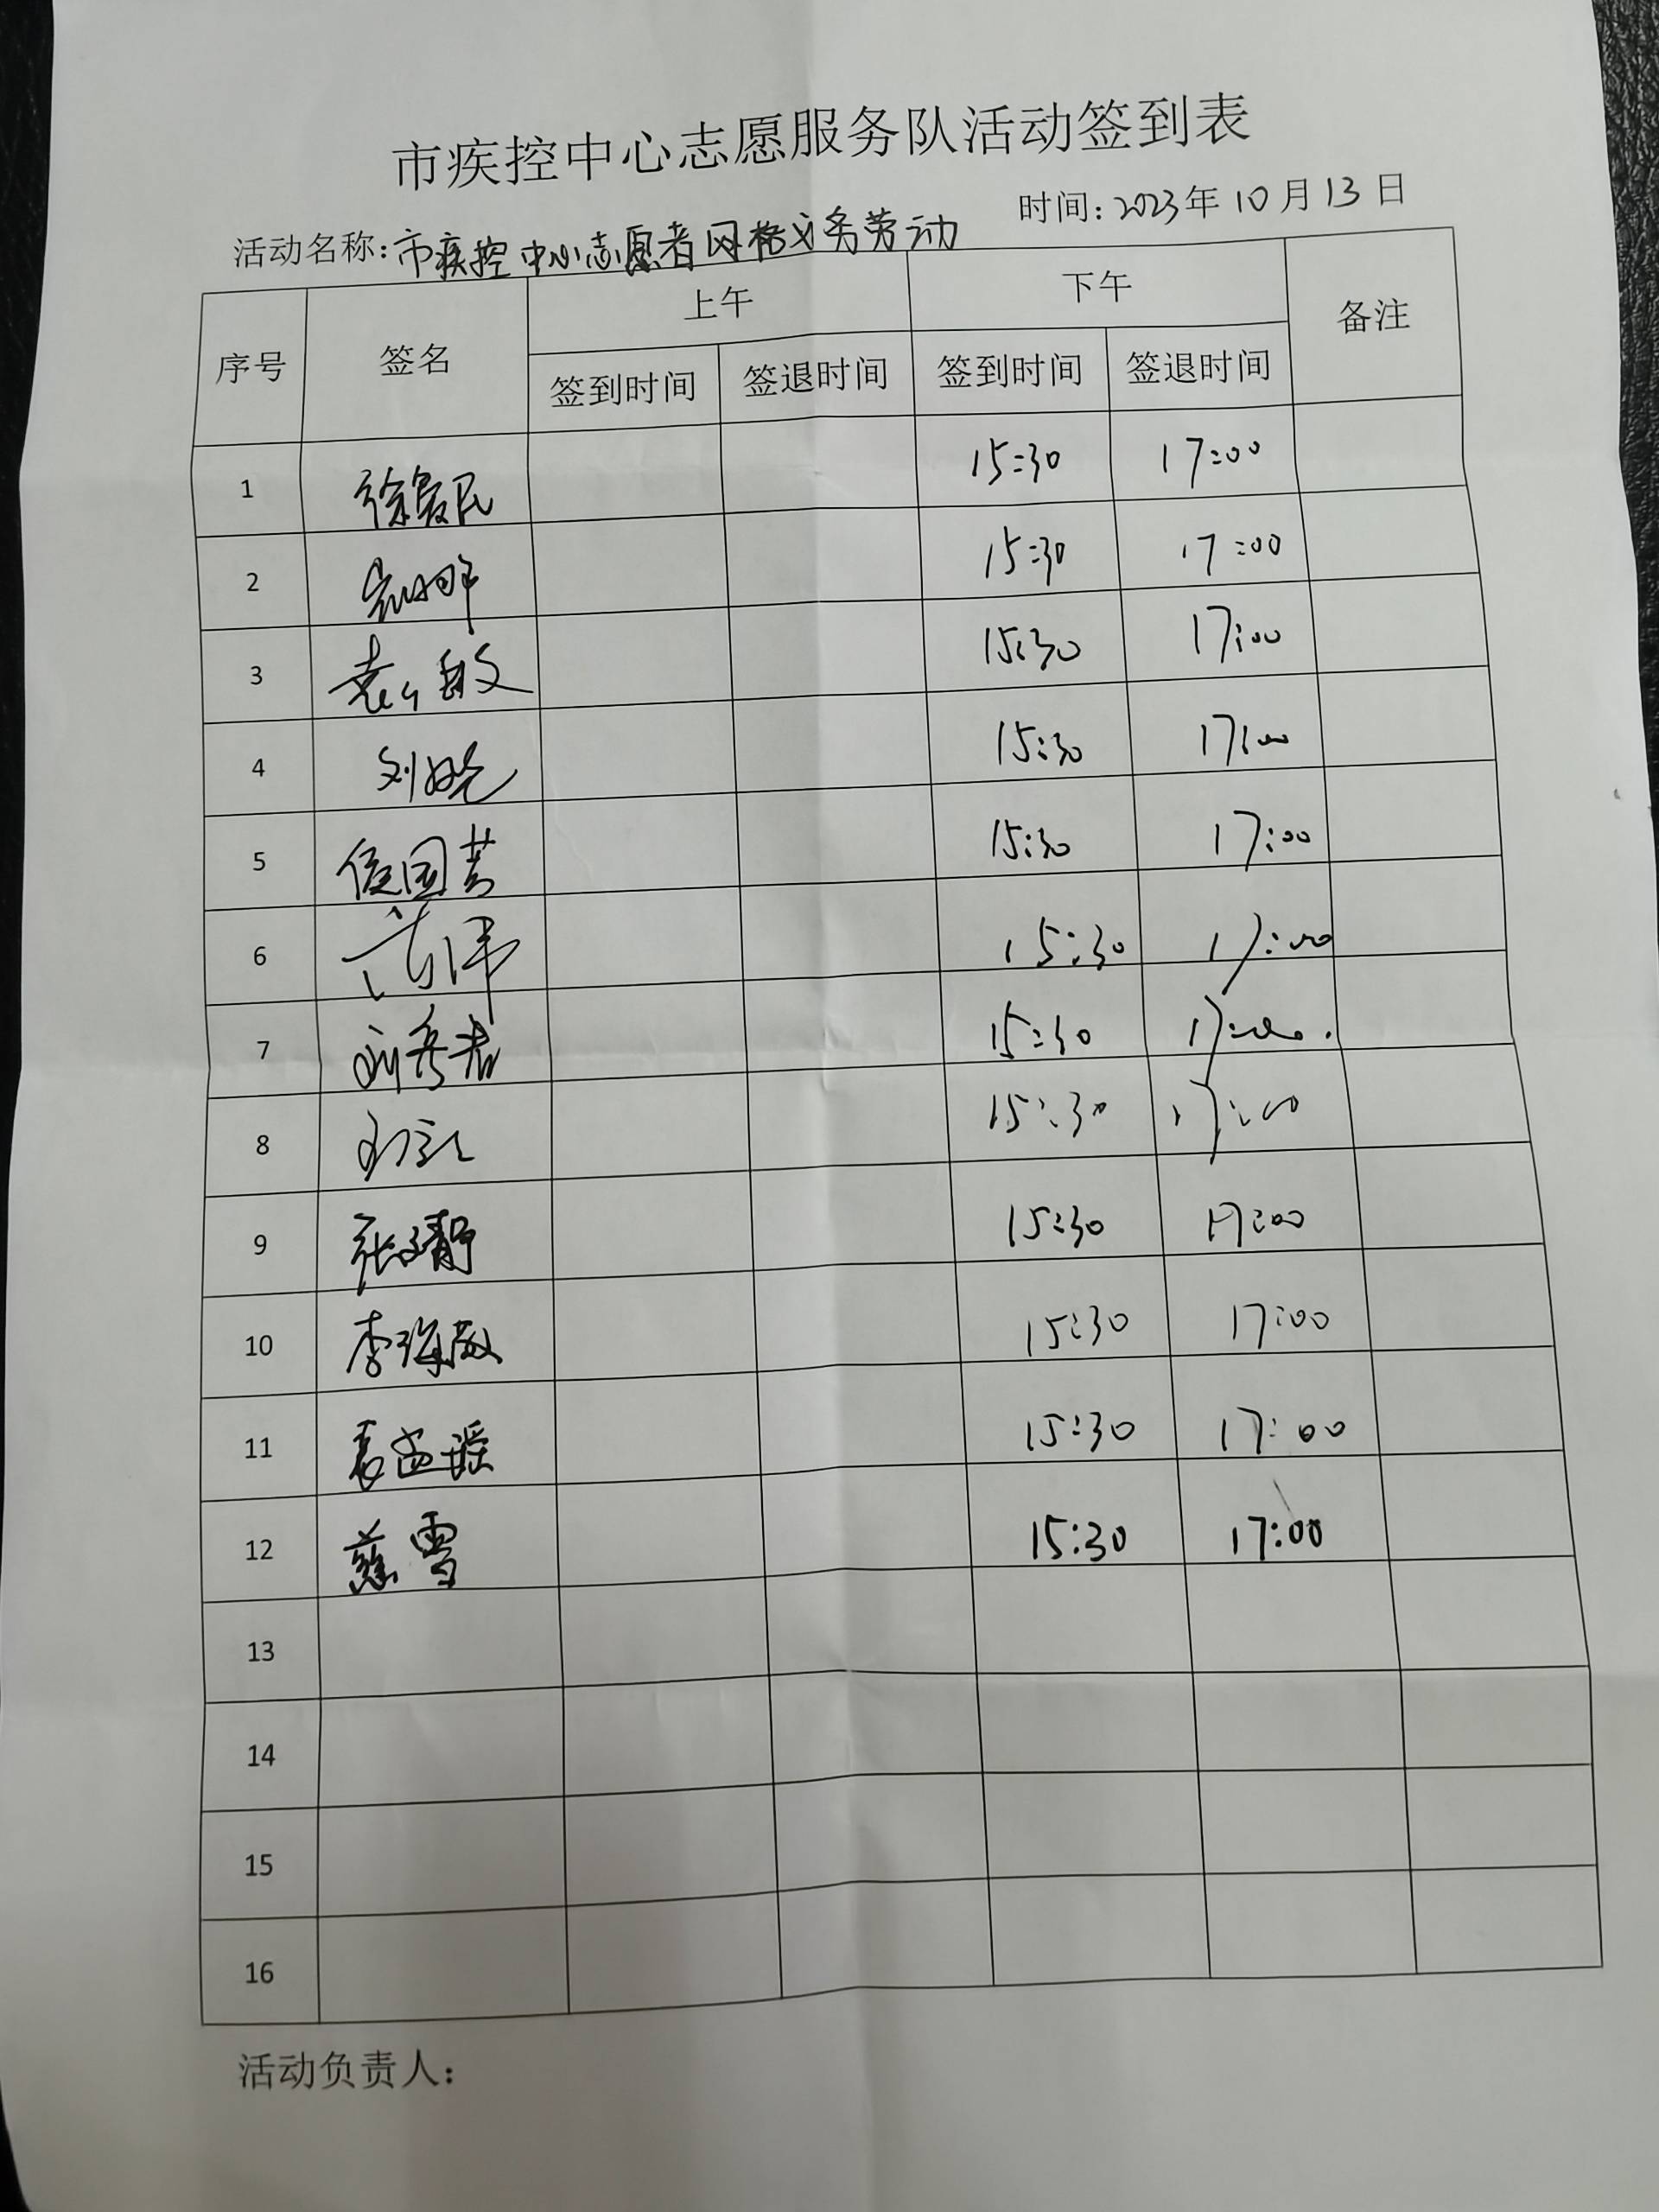 市疾控中心志愿服务队活动签到表
时间:2023年10月13日
活动名称:市疾控中心志愿者网格义务劳动
序号 签名 上午 下午 备注
签到时间 签退时间 签到时间 签退时间
1 徐爱民 15:30 17:00
2 15:30 17:00
3 15:30 17:00
4 刘晓 15:30 17:00
5 侯国芸 15:30 17:00
6 15:30 17:00
7 15:30 17:00
8 15:30 17:00
9 张文静 15:30 17:00
10 李 15:30 17:00
11 袁孟瑶 15:30 17:00
12 慈雪 15:30 17:00
13
14
15
16
活动负责人: